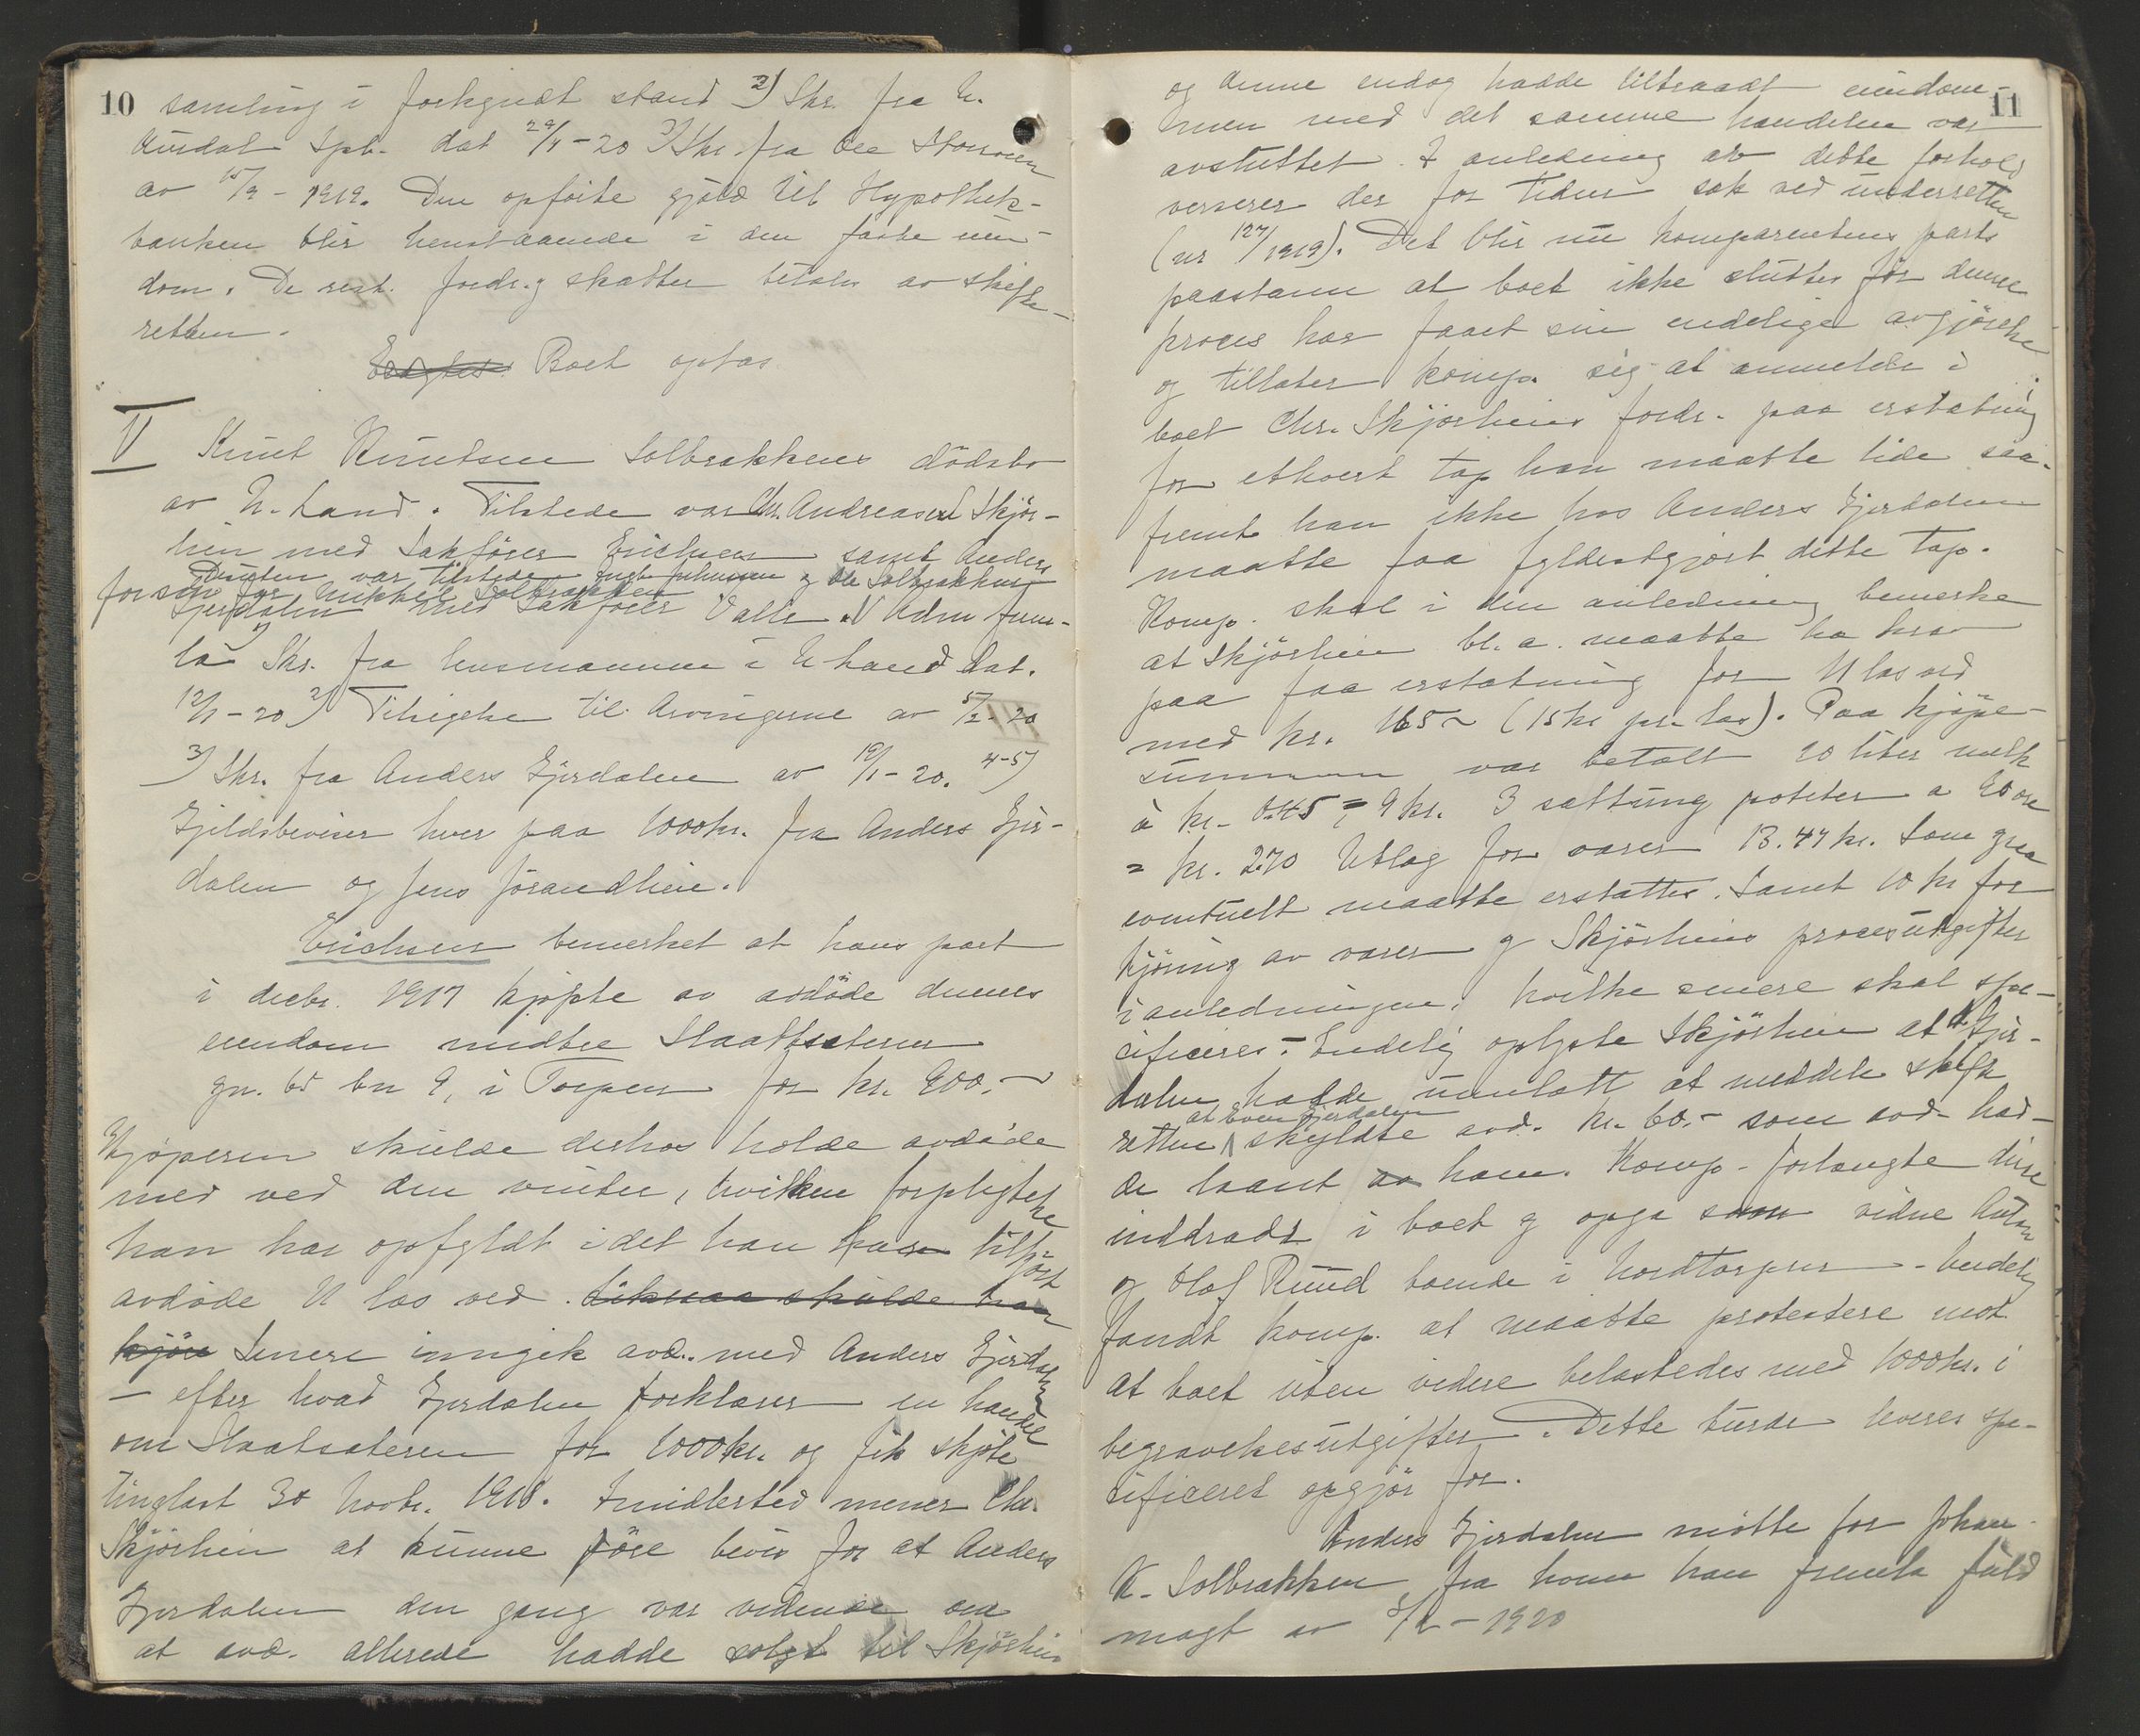 10
samling i forkynt stand 2) Skr. fra N.
Aurdal Spb. dat 29/4-20 3) Skr. fra Ole
av 15/9-1919. Den opførte gjæld til Hypothek-
banken blir henstaaende i den faste eien-
dom. De rest. fordr. og skatter betales av skifte-
retten.
Boet optas.
V Knut Knutsen Solbrækkens dødsbo
av N. Land. Tilstede var Chr. Andreassen Skjør-
hein med Sakfører Erichsen samt Anders
Desuten var tilstede Johansen og Ole Solbrækken
for sin far Mikkel Solbrækken
Gjerdalen med Sakfører Valle. Adm frem-
la 1) Skr. fra lensmannen i N Land dat.
12/1-20 2) Tilsigelse til Arvingerne av 5/2-20
3) Skr. fra Anders Gjerdalen av 19/1-20. 4-5)
Gjeldsbeviser hver paa 1000 kr. fra Anders Gjer-
dalen og Jens Jørandlien.
Erichsen bemerket at hans part
i decbr. 1917 kjøpte av avdøde dennes
eiendom nedtre Slaattsæteren
gn. bn 9, i Torpen for kr. 900.-
Kjøperen skulde derhos holde avdøde
med ved den vinter, hvilken forpligtelse
han har opfyldt idet han har tilkjørt
avdøde 11 las ved. Likesaa skulde han
kjøre Senere inngik avd. med Anders Gjerdalen
- efter hvad Gjerdalen forklarer - en handel
om Slaatsæteren for 1000 kr. og fik skjøte
tinglæst 30 Novbr. 1918. Imidlertid mener Chr.
Skjørhein at kunne føre bevis for at Anders
Gjerdalen den gang var vidende om
at avd. allerede hadde solgt til Skjørhein
11
og denne endog hadde tiltraadt eiendom-
men med det samme handelen var
avsluttet. I anledning av dette forhold
verserer der for tiden sak ved underretten
(nr 127/1919). Det blir nu komparentens parts
paastann at boet ikke sluttes før denne
proces har faaet sin endelige avgjørelse
og tillater komp. sig at anmelde i
boet Chr. Skjørheins fordr. paa erstatning
for ethvert tap han maatte lide saa-
fremt han ikke hos Anders Gjerdalen
maatte faa fyldestgjort dette tap.
Komp. skal i den anledning bemerke
at Skjørhein bl. a. maatte ha krav
paa faa erstatning for 11 las ved
med kr. 165 - (15 kr pr. las). Paa kjøpe-
summen var betalt 20 liter melk
à kr. 0.45 = 9 kr. 3 sættung poteter a 90 øre
= kr. 2.70 Utlag for varer 13.47 kr. Som
eventuelt maatte erstattes. Samt 10 kr for
kjøring av varer og Skjørheins procesutgifter
i anledningen, hvilke senere skal spe-
cificeres. - Endelig oplyste Skjørhein at A. Gjer-
dalen hadde unnlatt at meddele skifte
at Even Gjerdalen
retten skyldte avd. kr. 60.- som avd. had-
de laant av ham. Komp. forlangte disse
inddradt i boet og opga som vidne Anton
og Olaf Ruud boende i Nordtorpen - Endelig
fandt komp. at maatte protestere mot
at boet uten videre belastedes med 1000 kr. i
begravelsesutgifter. Dette turde leveres spe-
cificeret opgjør for.
Anders Gjerdalen møtte for Johan
K. Solbrækken, fra hvem han fremla fuld
magt av 3/2-1920